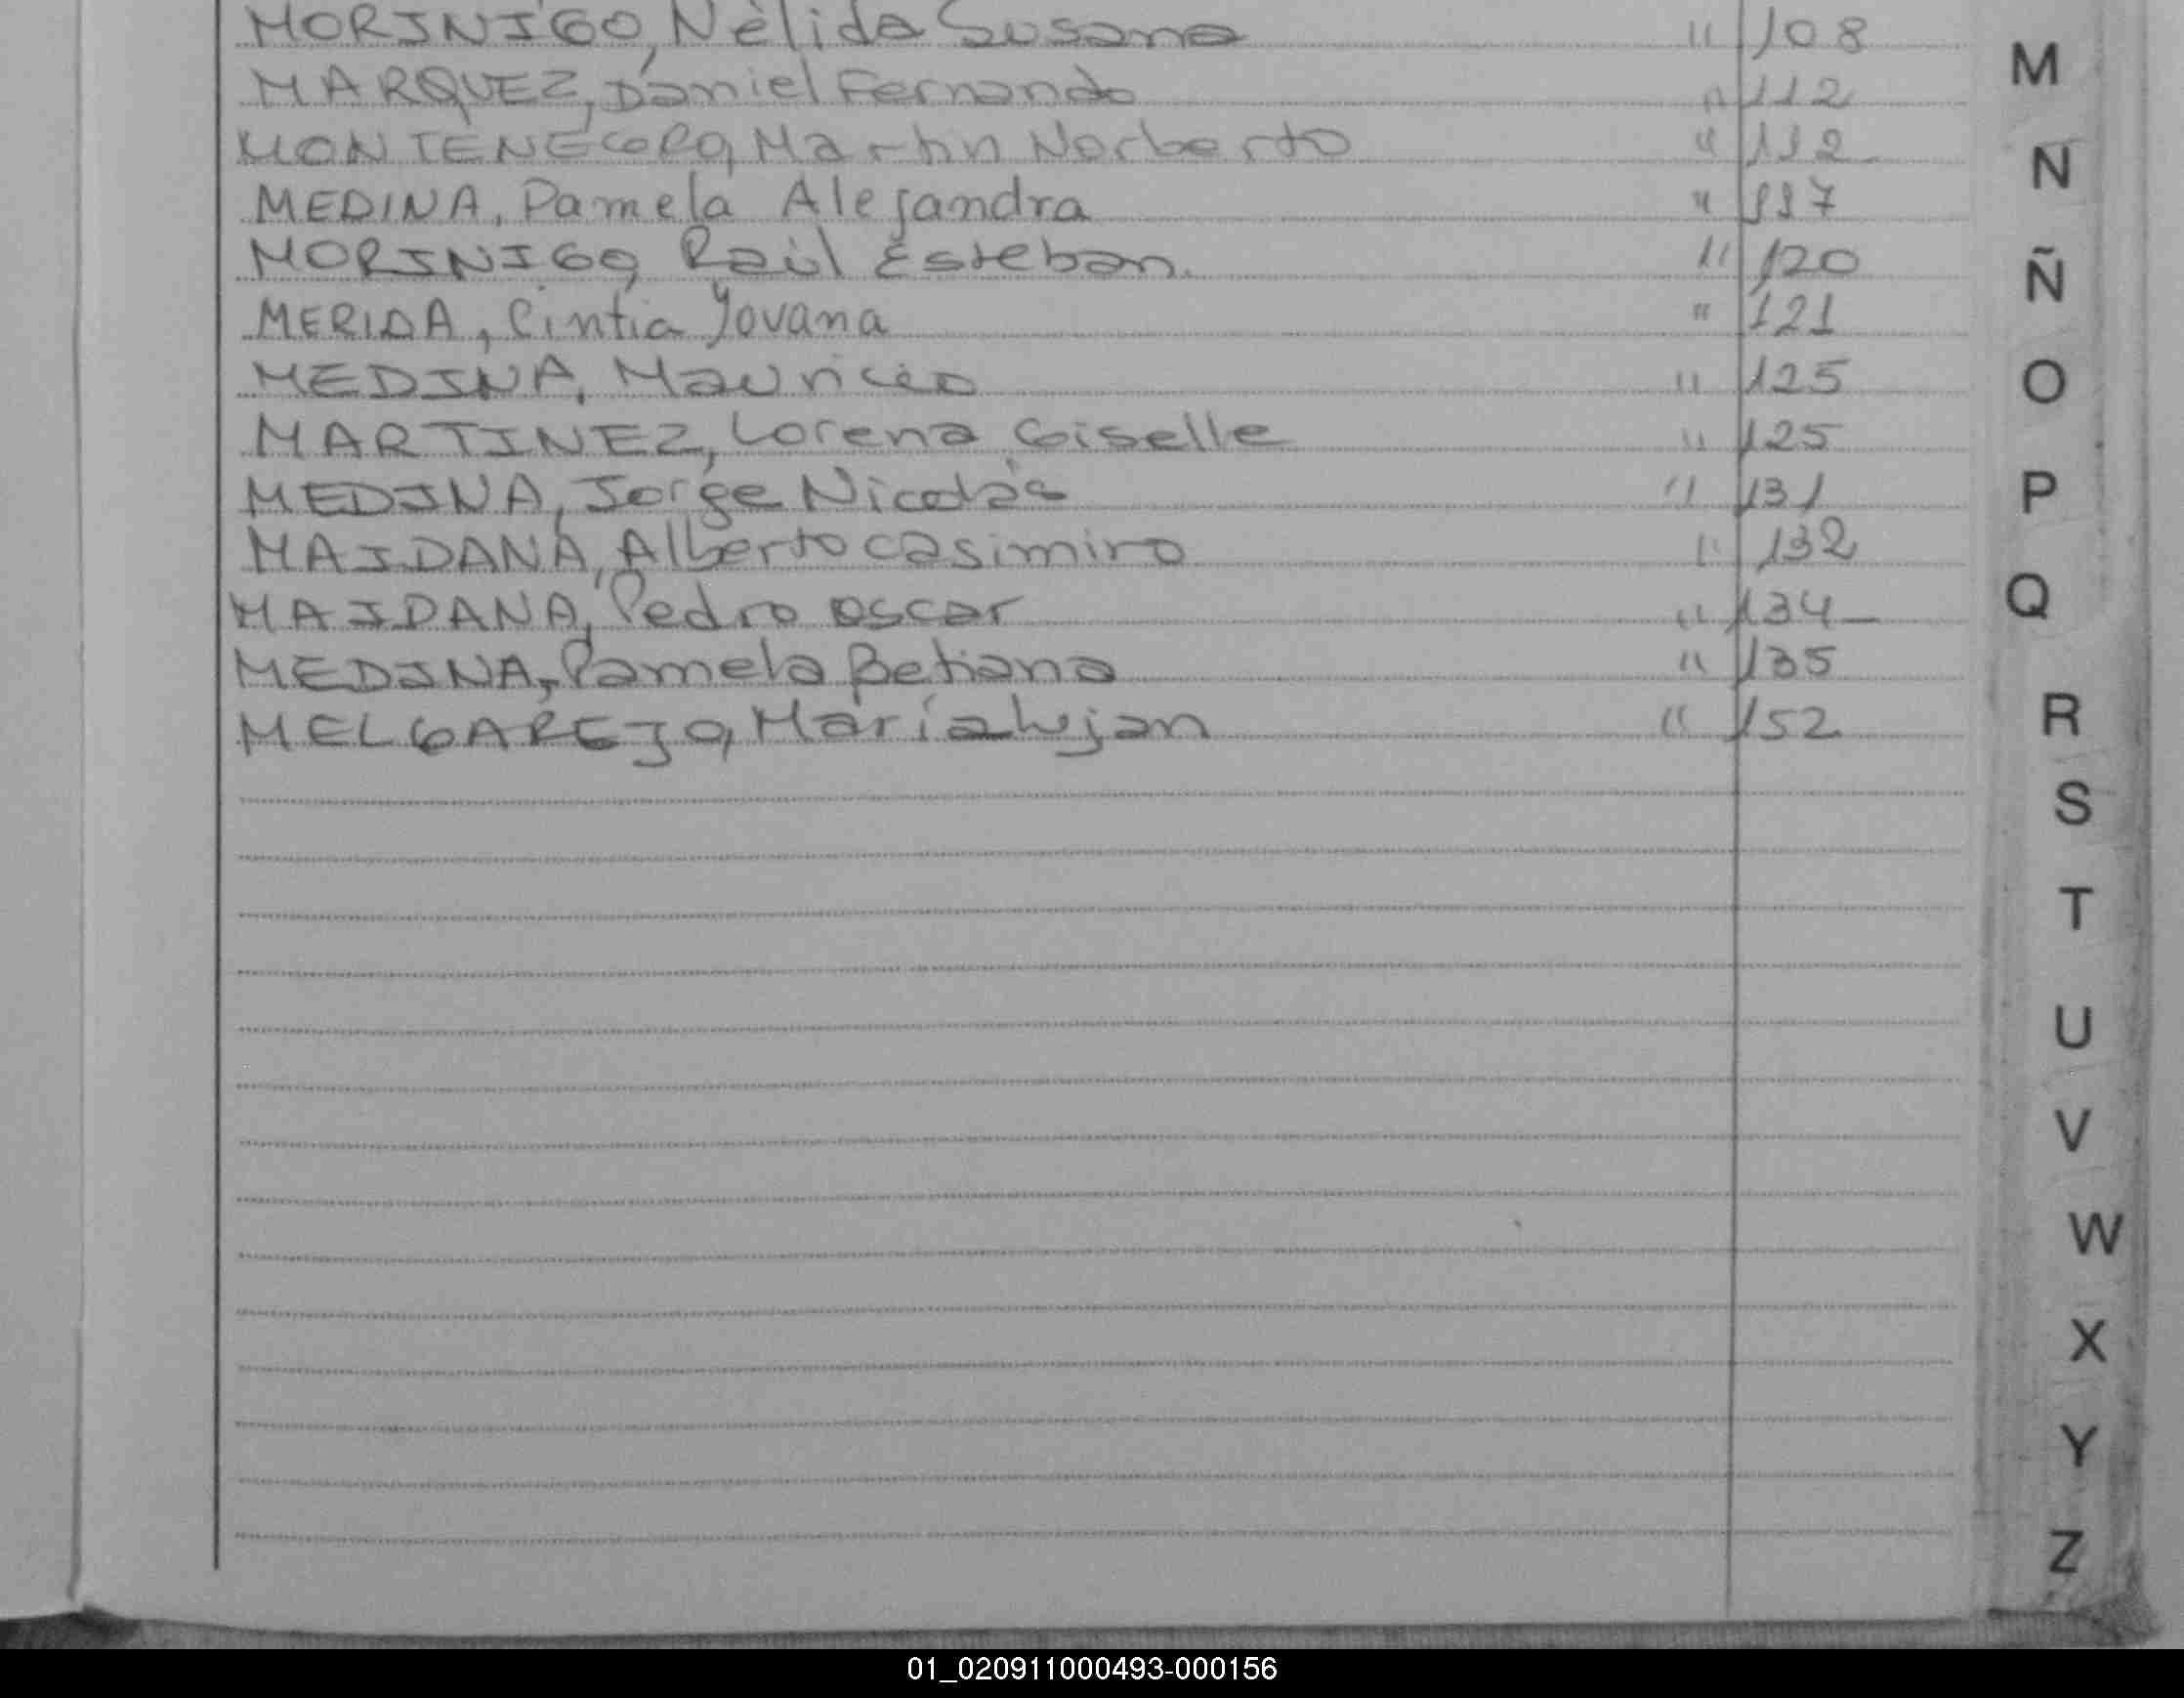 MORINIGO, Nélida Susana " 108
MARQUEZ, Daniel Fernando " 112
MONTENEGRO, Martin Norberto " 112
MEDINA, Pamela Alejandra " 117
MORINIGO, Raúl Esteban. " 120
MERIDA, Cintia Yovana " 121
MEDINA, Mauricio " 125
MARTINEZ, Lorena Giselle " 125
MEDINA, Jorge Nicolás " 131
MAIDANA, Alberto Casimiro " 132
MAIDANA, Pedro Oscar " 134
MEDINA, Pamela Betiana " 135
MELGAREJO, María Lujan " 152
M
N
Ñ
O
P
Q
R
S
T
U
V
W
X
Y
Z
01_020911000493-000156